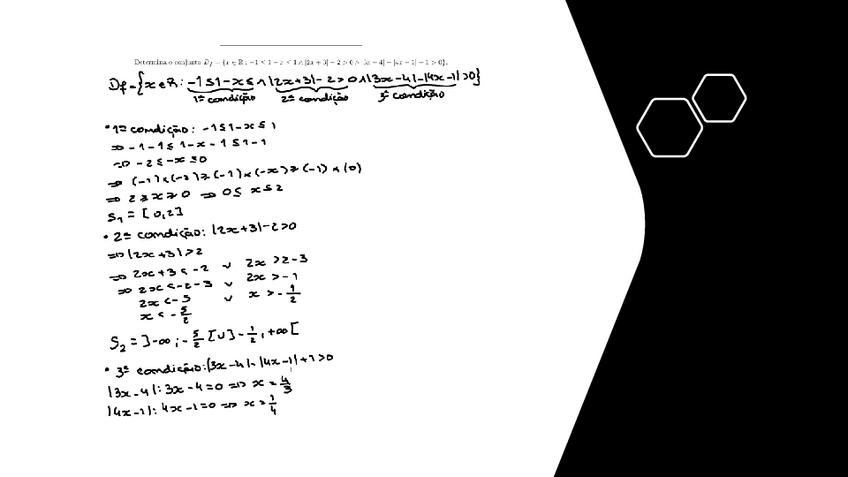 Determina o conjunto D_f = {x ∈ ℝ : −1 ≤ 1 − x ≤ 1 ∧ |2x + 3| − 2 > 0 ∧ |3x − 4| − |4x − 1| + 1 > 0}.
Df = {x ∈ R : −1 ≤ 1−x ≤ ∧ |2x+3|−2 > 0 ∧ |3x−4|−|4x−1| > 0}
1ª condição 2ª condição 3ª condição
• 1ª condição: −1 ≤ 1−x ≤ 1
⇒ −1−1 ≤ 1−x−1 ≤ 1−1
⇒ −2 ≤ −x ≤ 0
⇒ (−1)×(−2) ≥ (−1)×(−x) ≥ (−1)×(0)
⇒ 2 ≥ x ≥ 0 ⇒ 0 ≤ x ≤ 2
S₁ = [0,2]
• 2ª condição: |2x+3|−2 > 0
⇒ |2x+3| > 2
⇒ 2x+3 < −2 ∨ 2x > 2−3
⇒ 2x < −2−3 ∨ 2x > −1
2x < −5 ∨ x > −1/2
x < −5/2
S₂ = ]−∞; −5/2[ ∪ ]−1/2, +∞[
• 3ª condição: |3x−4|−|4x−1|+1 > 0
|3x−4|: 3x−4 = 0 ⇒ x = 4/3
|4x−1|: 4x−1 = 0 ⇒ x = 1/4